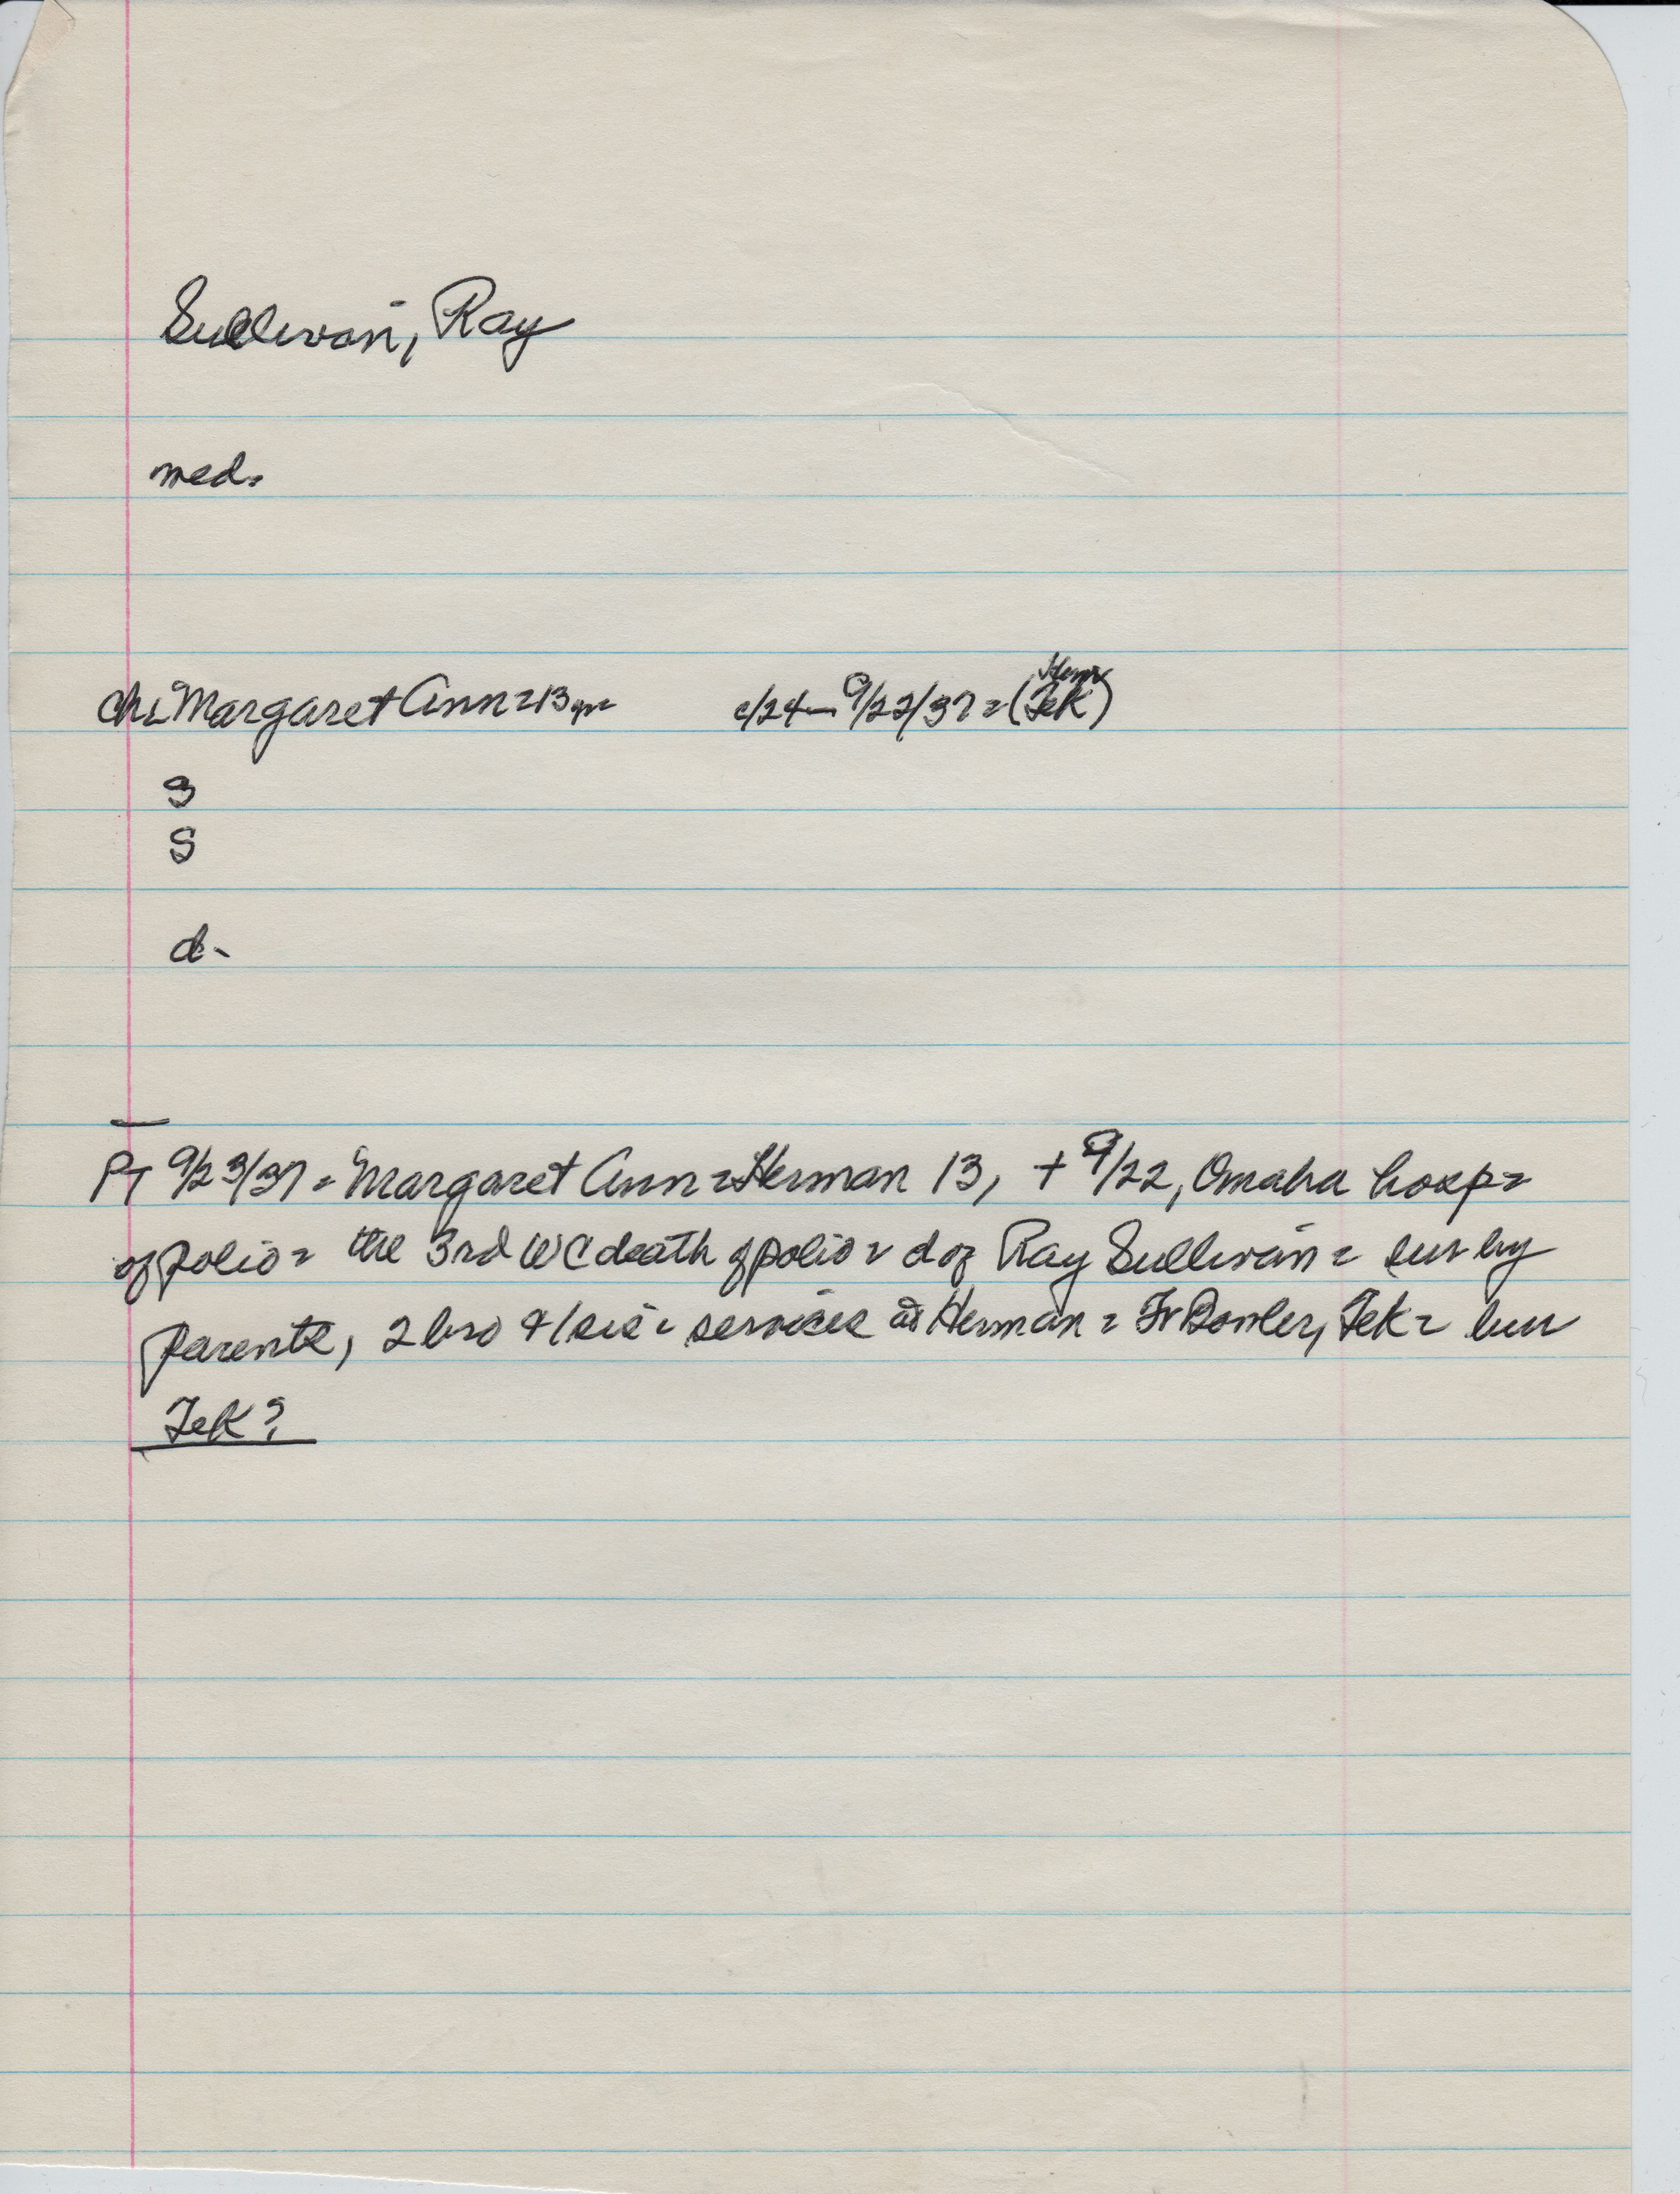 Sullivan, Ray
med.
Ch: Margaret Ann = 13 yrs c/24 — 9/22/37 = (Tek)
Herm
S
S
d-
PT 9/23/37 = Margaret Ann = Herman 13, + 9/22, Omaha hosp =
of polio = the 3rd WC death of polio = d of Ray Sullivan = sur by
parents, 2 bro & 1 sis = services at Herman = Fr Bowler, Tek = bur
Tek?